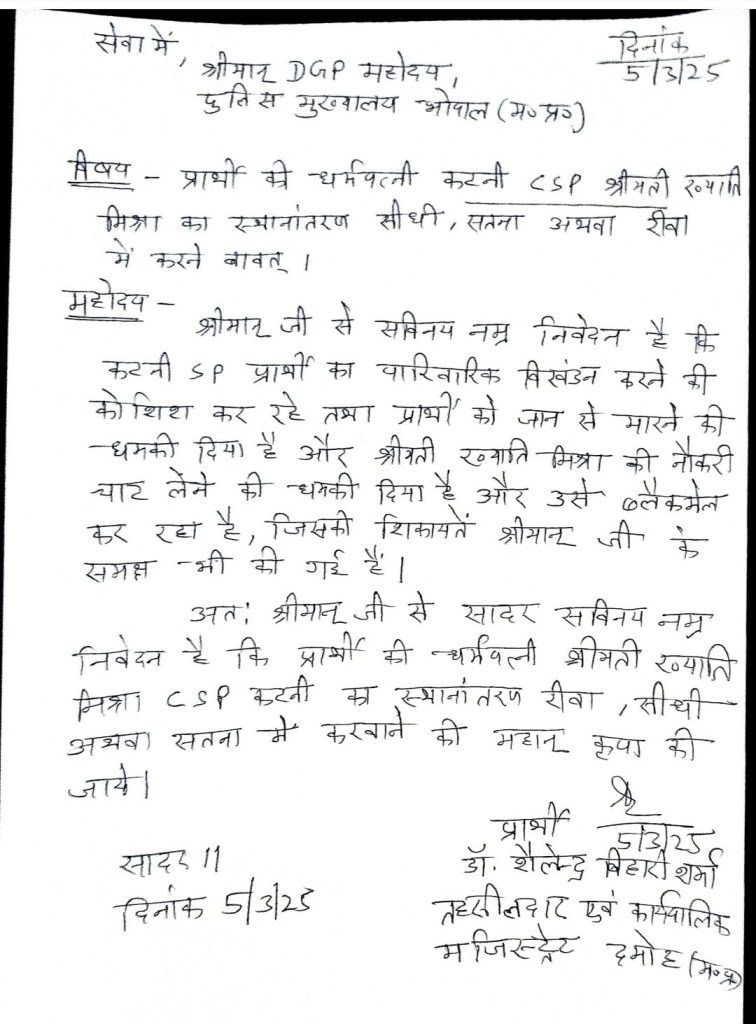 सेवा में,
दिनांक
5/3/25
श्रीमान् DGP महोदय,
पुलिस मुख्यालय भोपाल (म०प्र०)
विषय - प्रार्थी की धर्मपत्नी कटनी CSP श्रीमती ख्याति
मिश्रा का स्थानांतरण सीधी, सतना अथवा रीवा
में करने बावत् ।
महोदय -
श्रीमान् जी से सविनय नम्र निवेदन है कि
कटनी SP प्रार्थी का पारिवारिक विखंडन करने की
कोशिश कर रहे तथा प्रार्थी को जान से मारने की
धमकी दिया है और श्रीमती ख्याति मिश्रा की नौकरी
चाट लेने की धमकी दिया है और उसे ब्लैकमेल
कर रहा है, जिसकी शिकायतें श्रीमान् जी के
समक्ष भी की गई हैं ।
अत: श्रीमान् जी से सादर सविनय नम्र
निवेदन है कि प्रार्थी की धर्मपत्नी श्रीमती ख्याति
मिश्रा CSP कटनी का स्थानांतरण रीवा, सीधी
अथवा सतना में करवाने की महान् कृपा की
जाये ।
प्रार्थी 5/3/25
सादर ॥
डॉ. शैलेन्द्र बिहारी शर्मा
दिनांक 5/3/25
तहसीलदार एवं कार्यपालिक
मजिस्ट्रेट दमोह (म०प्र०)